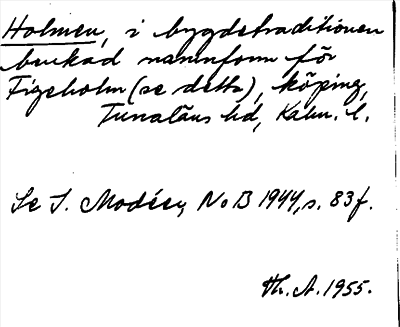 Holmen, i bygdetraditionen
brukad namnform för
Figeholm (se detta), köping,
Tunaläns hd, Kalm. l.
Se I. Modéer, NoB 1944, s. 83 f.
Th. A. 1955.